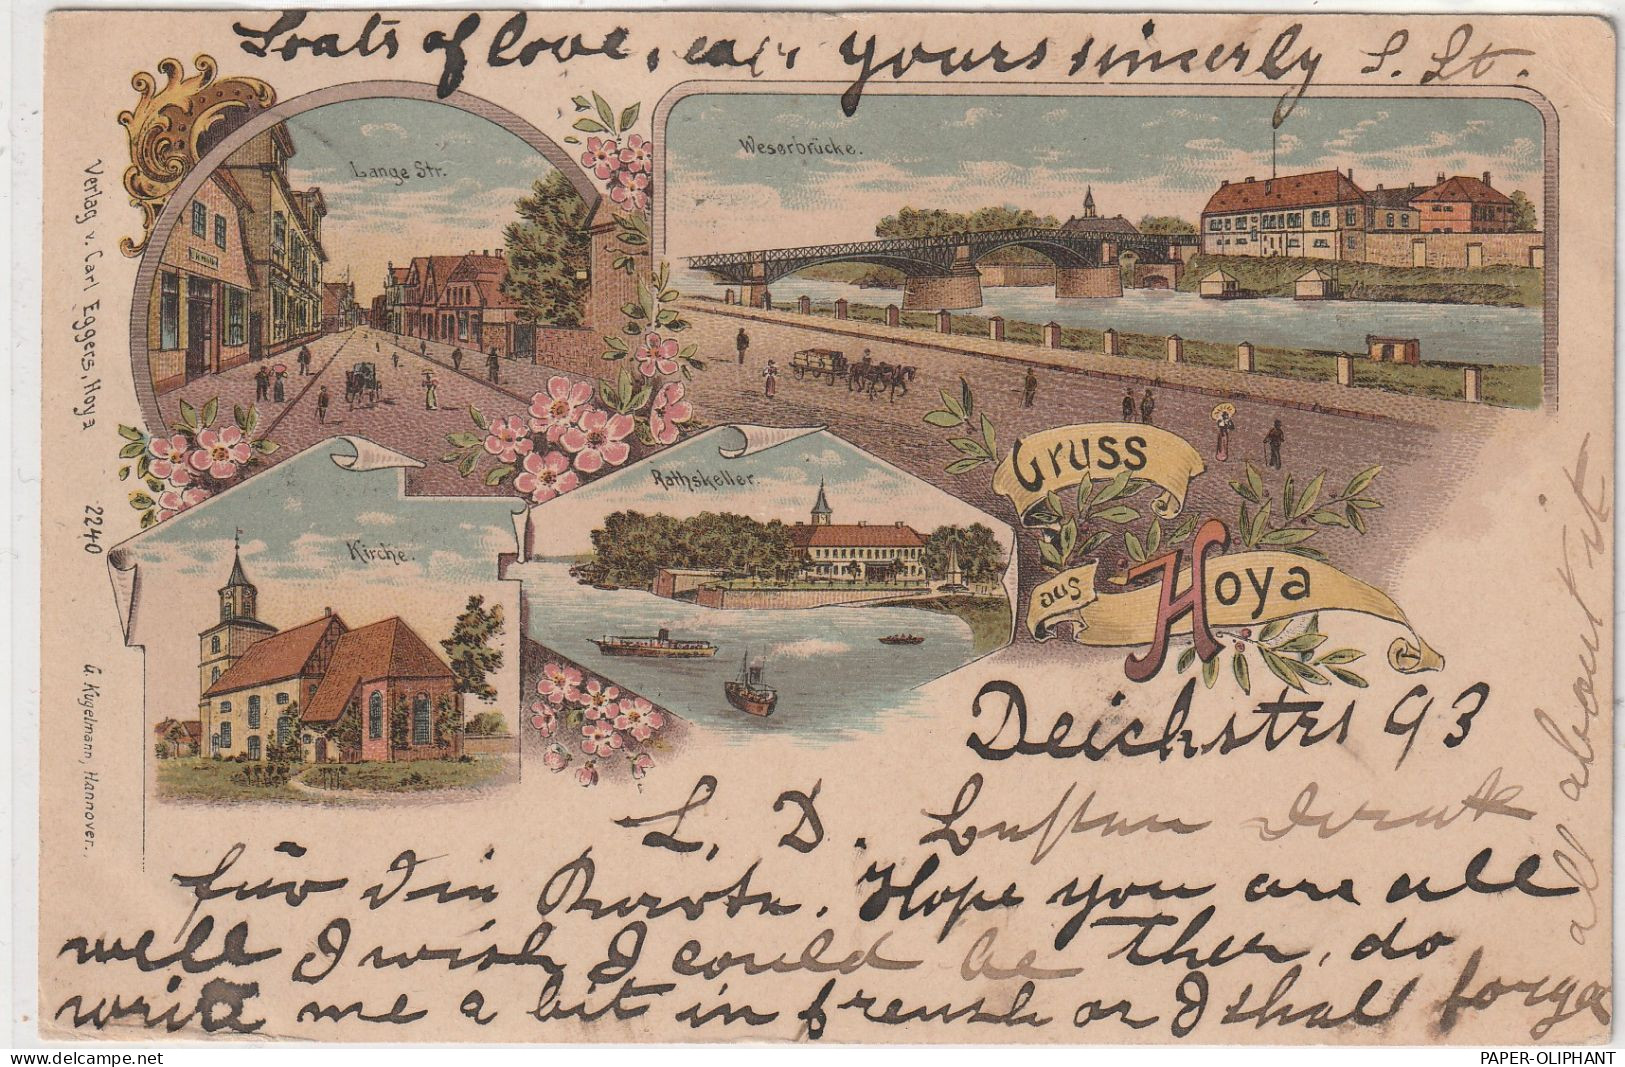 Loats of love, ever yours sincerly S. St.
Lange Str.
Weserbrücke.
Verlag v. Carl Eggers, Hoya 2240 G. Kugelmann, Hannover.
Gruss
aus
Hoya
Rathskeller.
Kirche.
Deichstrs 93
L. D. Besten Dank
für Die Karte. Hope you are all
well I wish I could be ther, do
write me a bit in frensh or I shall forget
all about it
PAPER-OLIPHANT